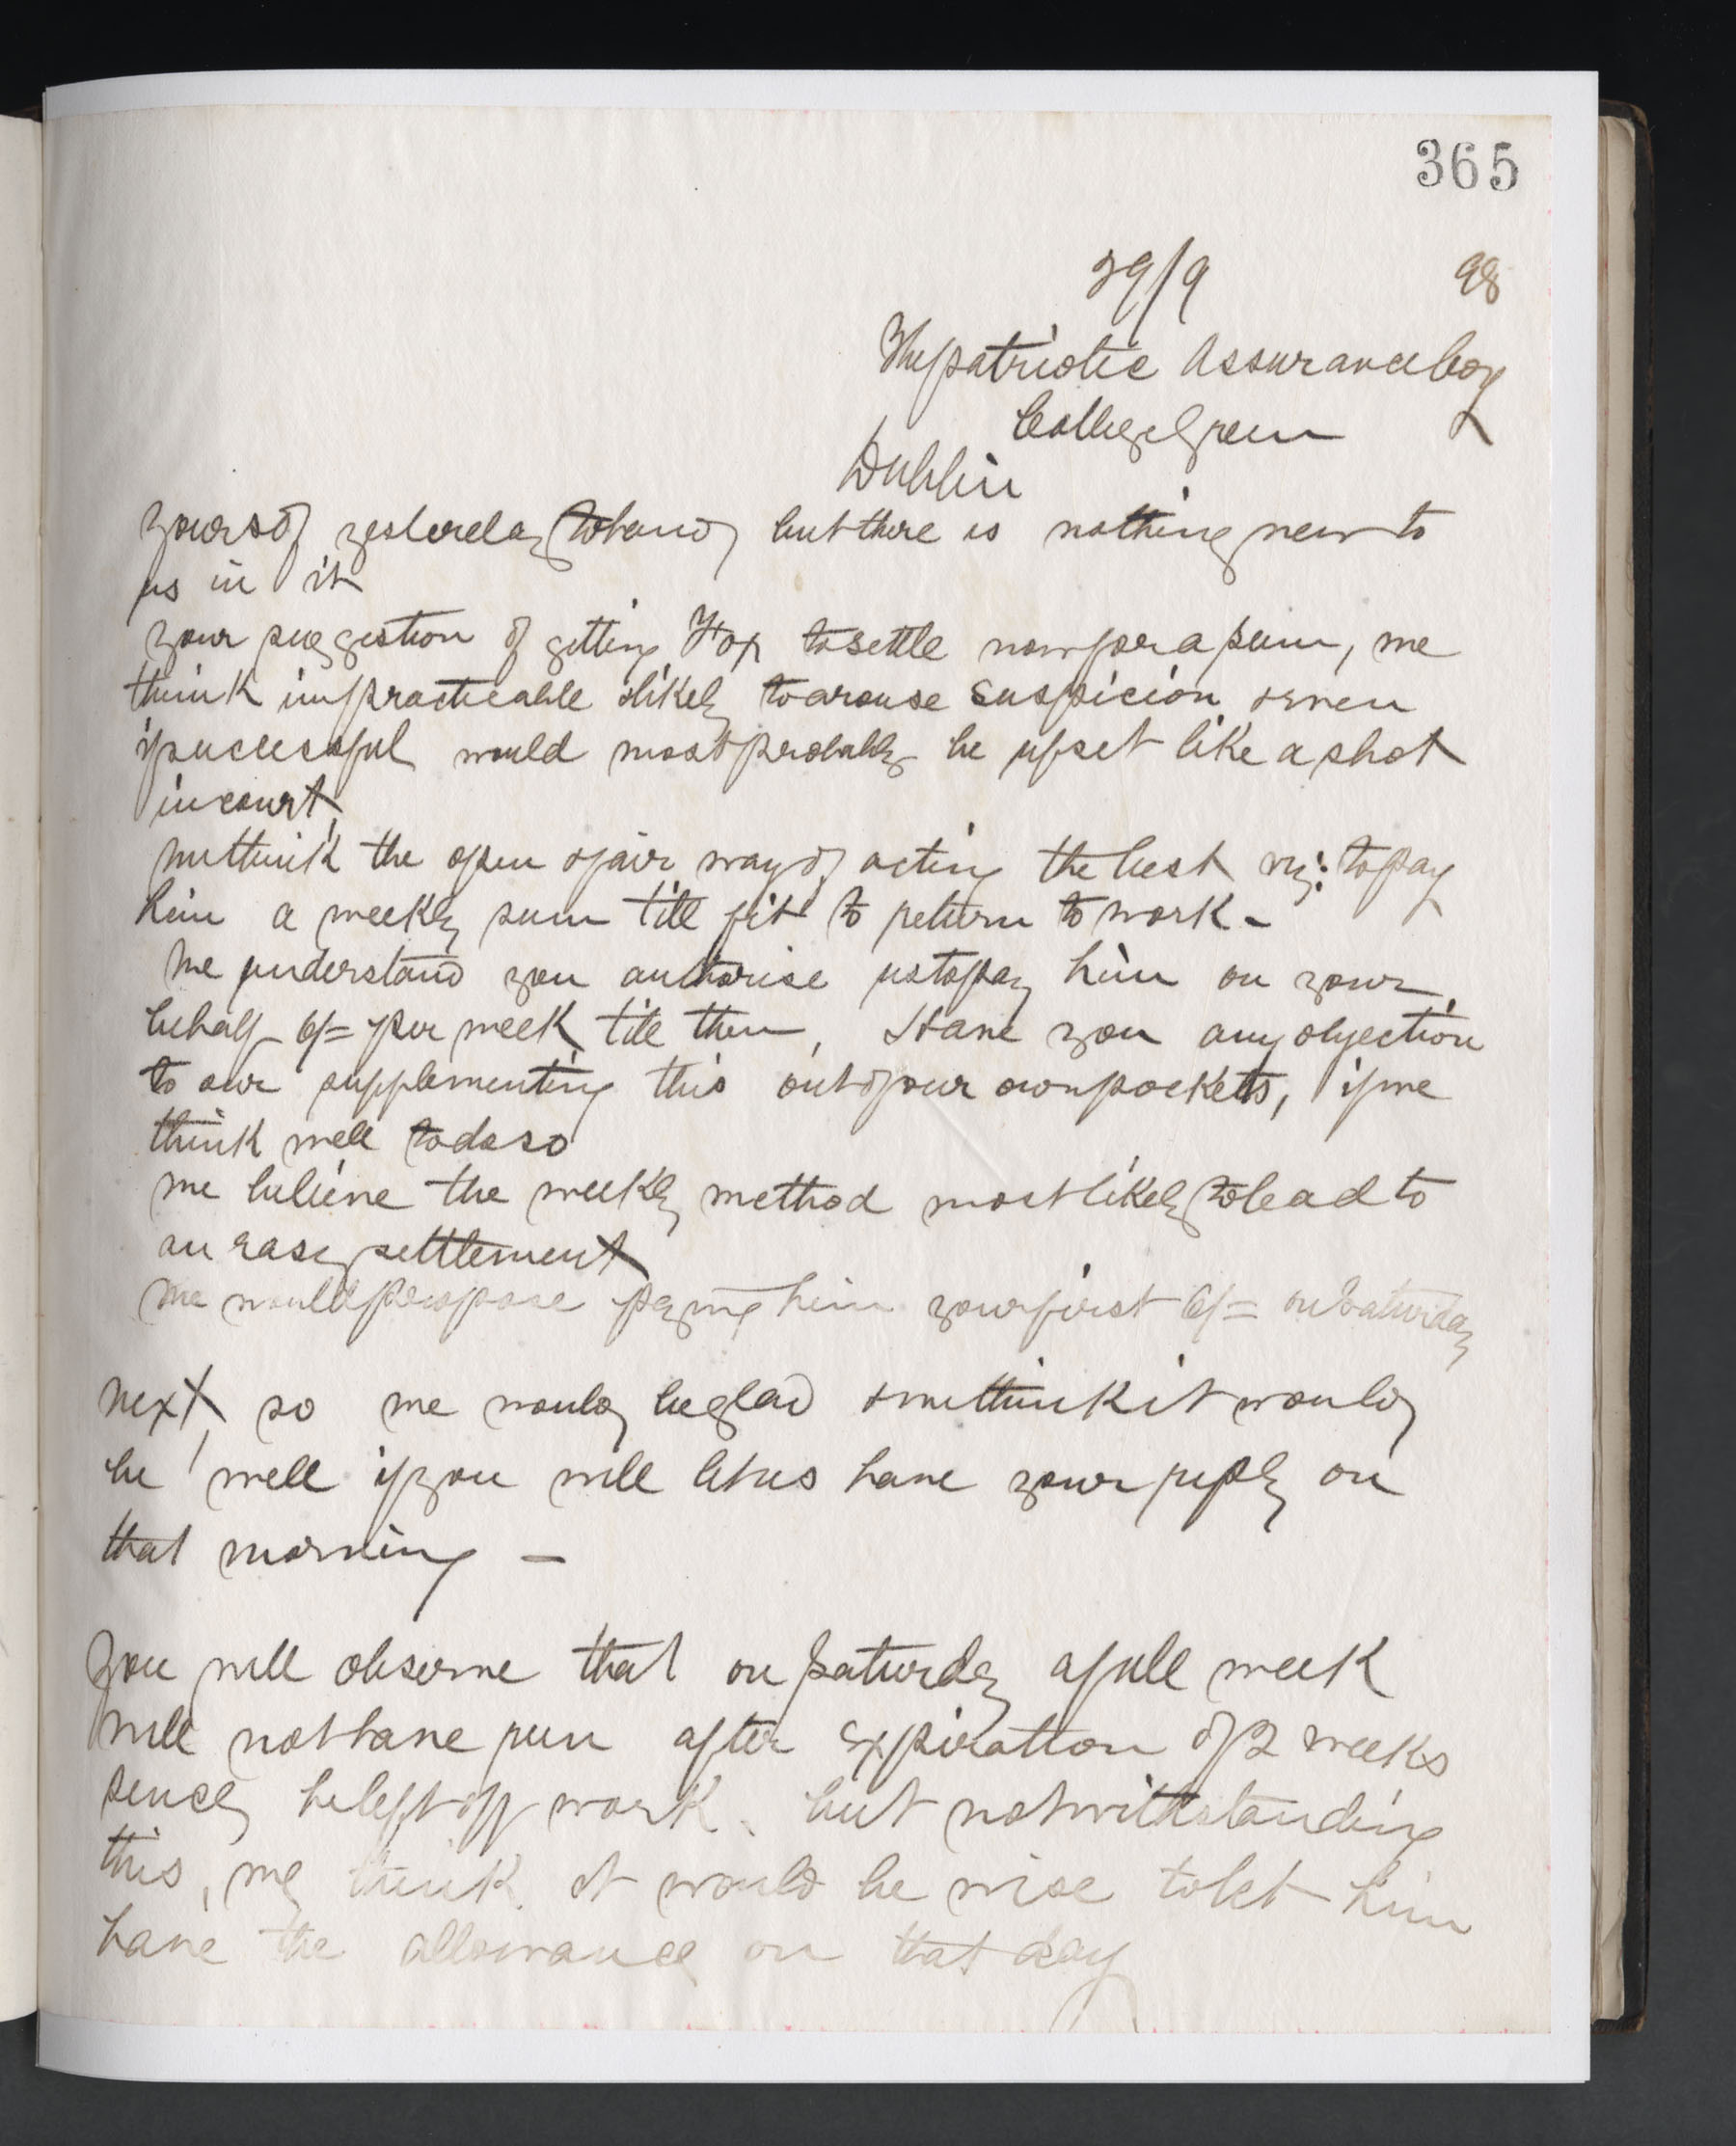 365
29/9 98
The patriotic Assurance Coy
College Green
Dublin
yours of yesterday to hand, but there is nothing new to
us in it
your suggestion of getting Fox to settle now for a sum, we
think impracticable & likely to arouse suspicion & even
if successful would most probably be upset like a shot
in court.
we think the open & fair way of acting the best viz: to pay
him a weekly sum till fit to return to work -
We understand you authorise us to pay him on your
behalf 6/= per week till then, Have you any objection
to our supplementing this out of our own pockets, if we
think well to do so
we believe the weekly method most likely to lead to
an easy settlement
We would propose paying him your first 6/= on Saturday
next, so we would be glad & we think it would
be well if you will let us have your reply on
that morning -
You will observe that on Saturday a full week
will not have run after expiration of 2 weeks
since he left off work. but notwithstanding
this, we think it would be wise to let him
have the allowance on that day